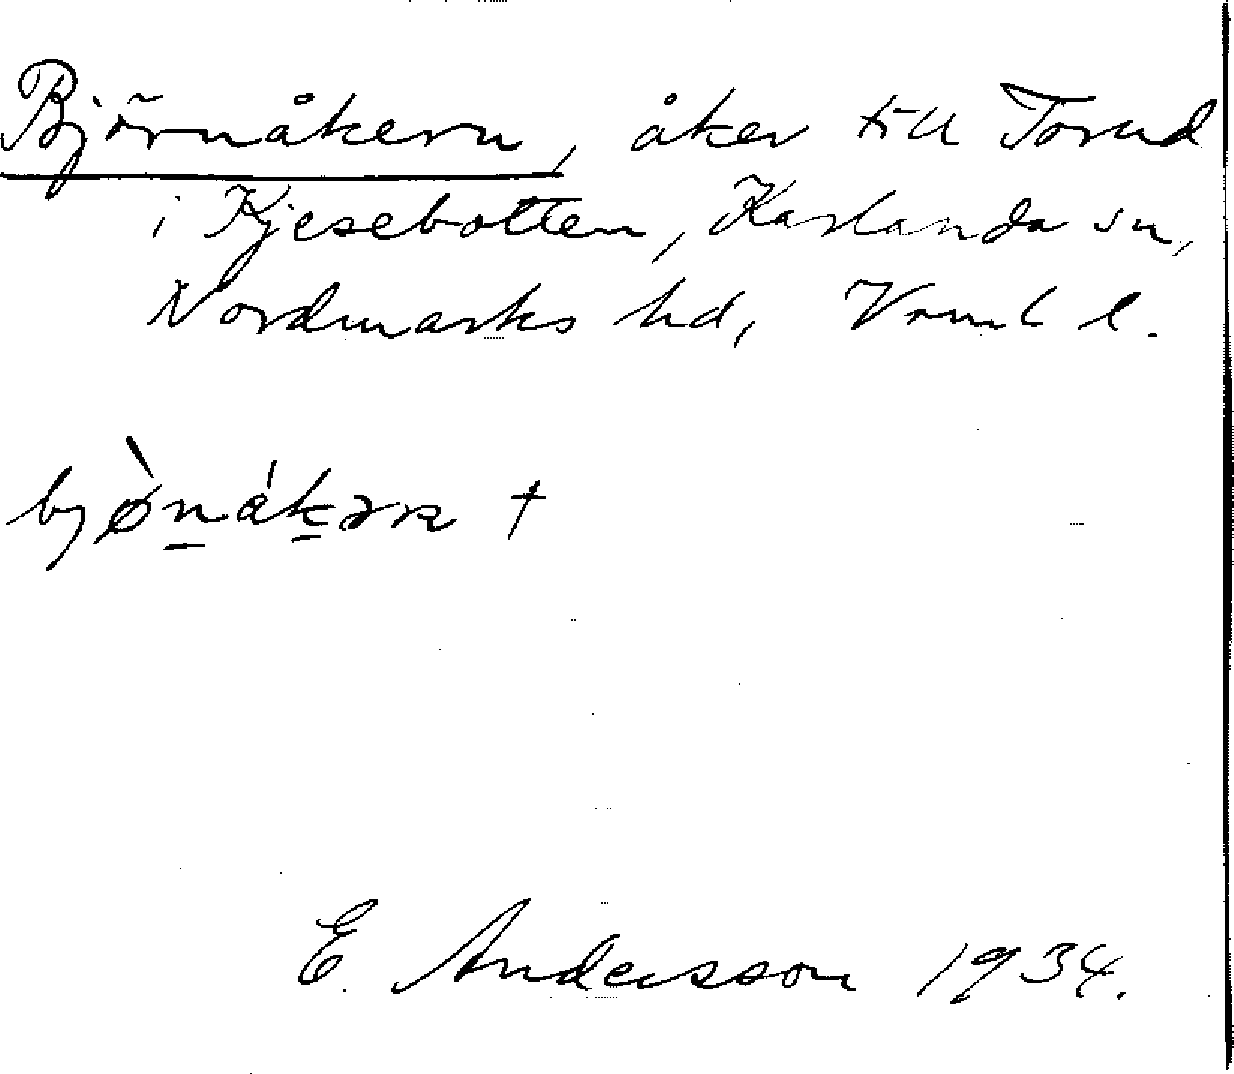 Björnåkern, åker till Torud
i Kjesebotten, Karlanda sn,
Nordmarks hd, Vrml l.
bjø̀n̲ák̲ərn †
E. Andersson 1934.